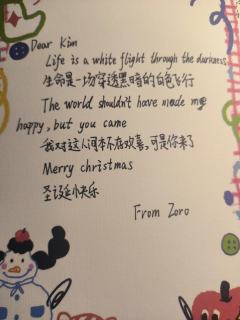 Dear Kim
Life is a white flight through the darkness
生命是一切穿透黑暗的白色飞行
The world shouldn't have made me
happy, but you came
我对这人间本不在欢喜,可是你来了
Merry christmas
圣诞快乐
From Zoro